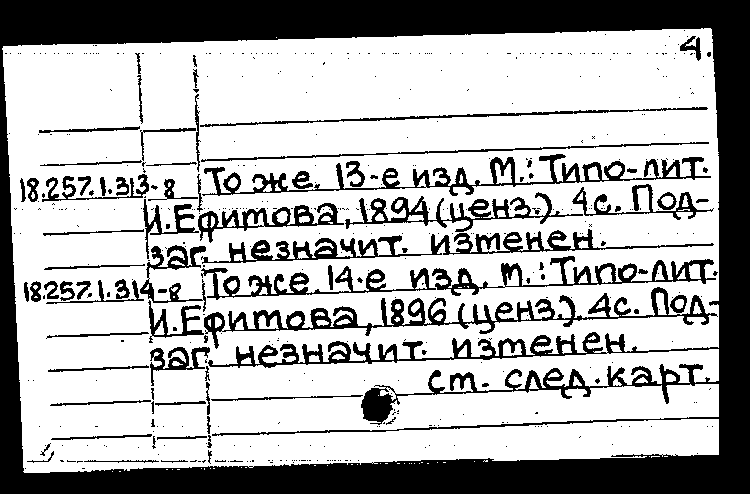 4.
18.257.1.313-8 То же. 13-е изд. М.: Типо-лит.
И. Ефимова, 1894 (ценз.). 4 с. Под-
заг. незначит. изменен.
18257.1.314-8 То же. 14-е изд. М.: Типо-лит.
И. Ефимова, 1896 (ценз.). 4 с. Под-
заг. незначит. изменен.
см. след. карт.